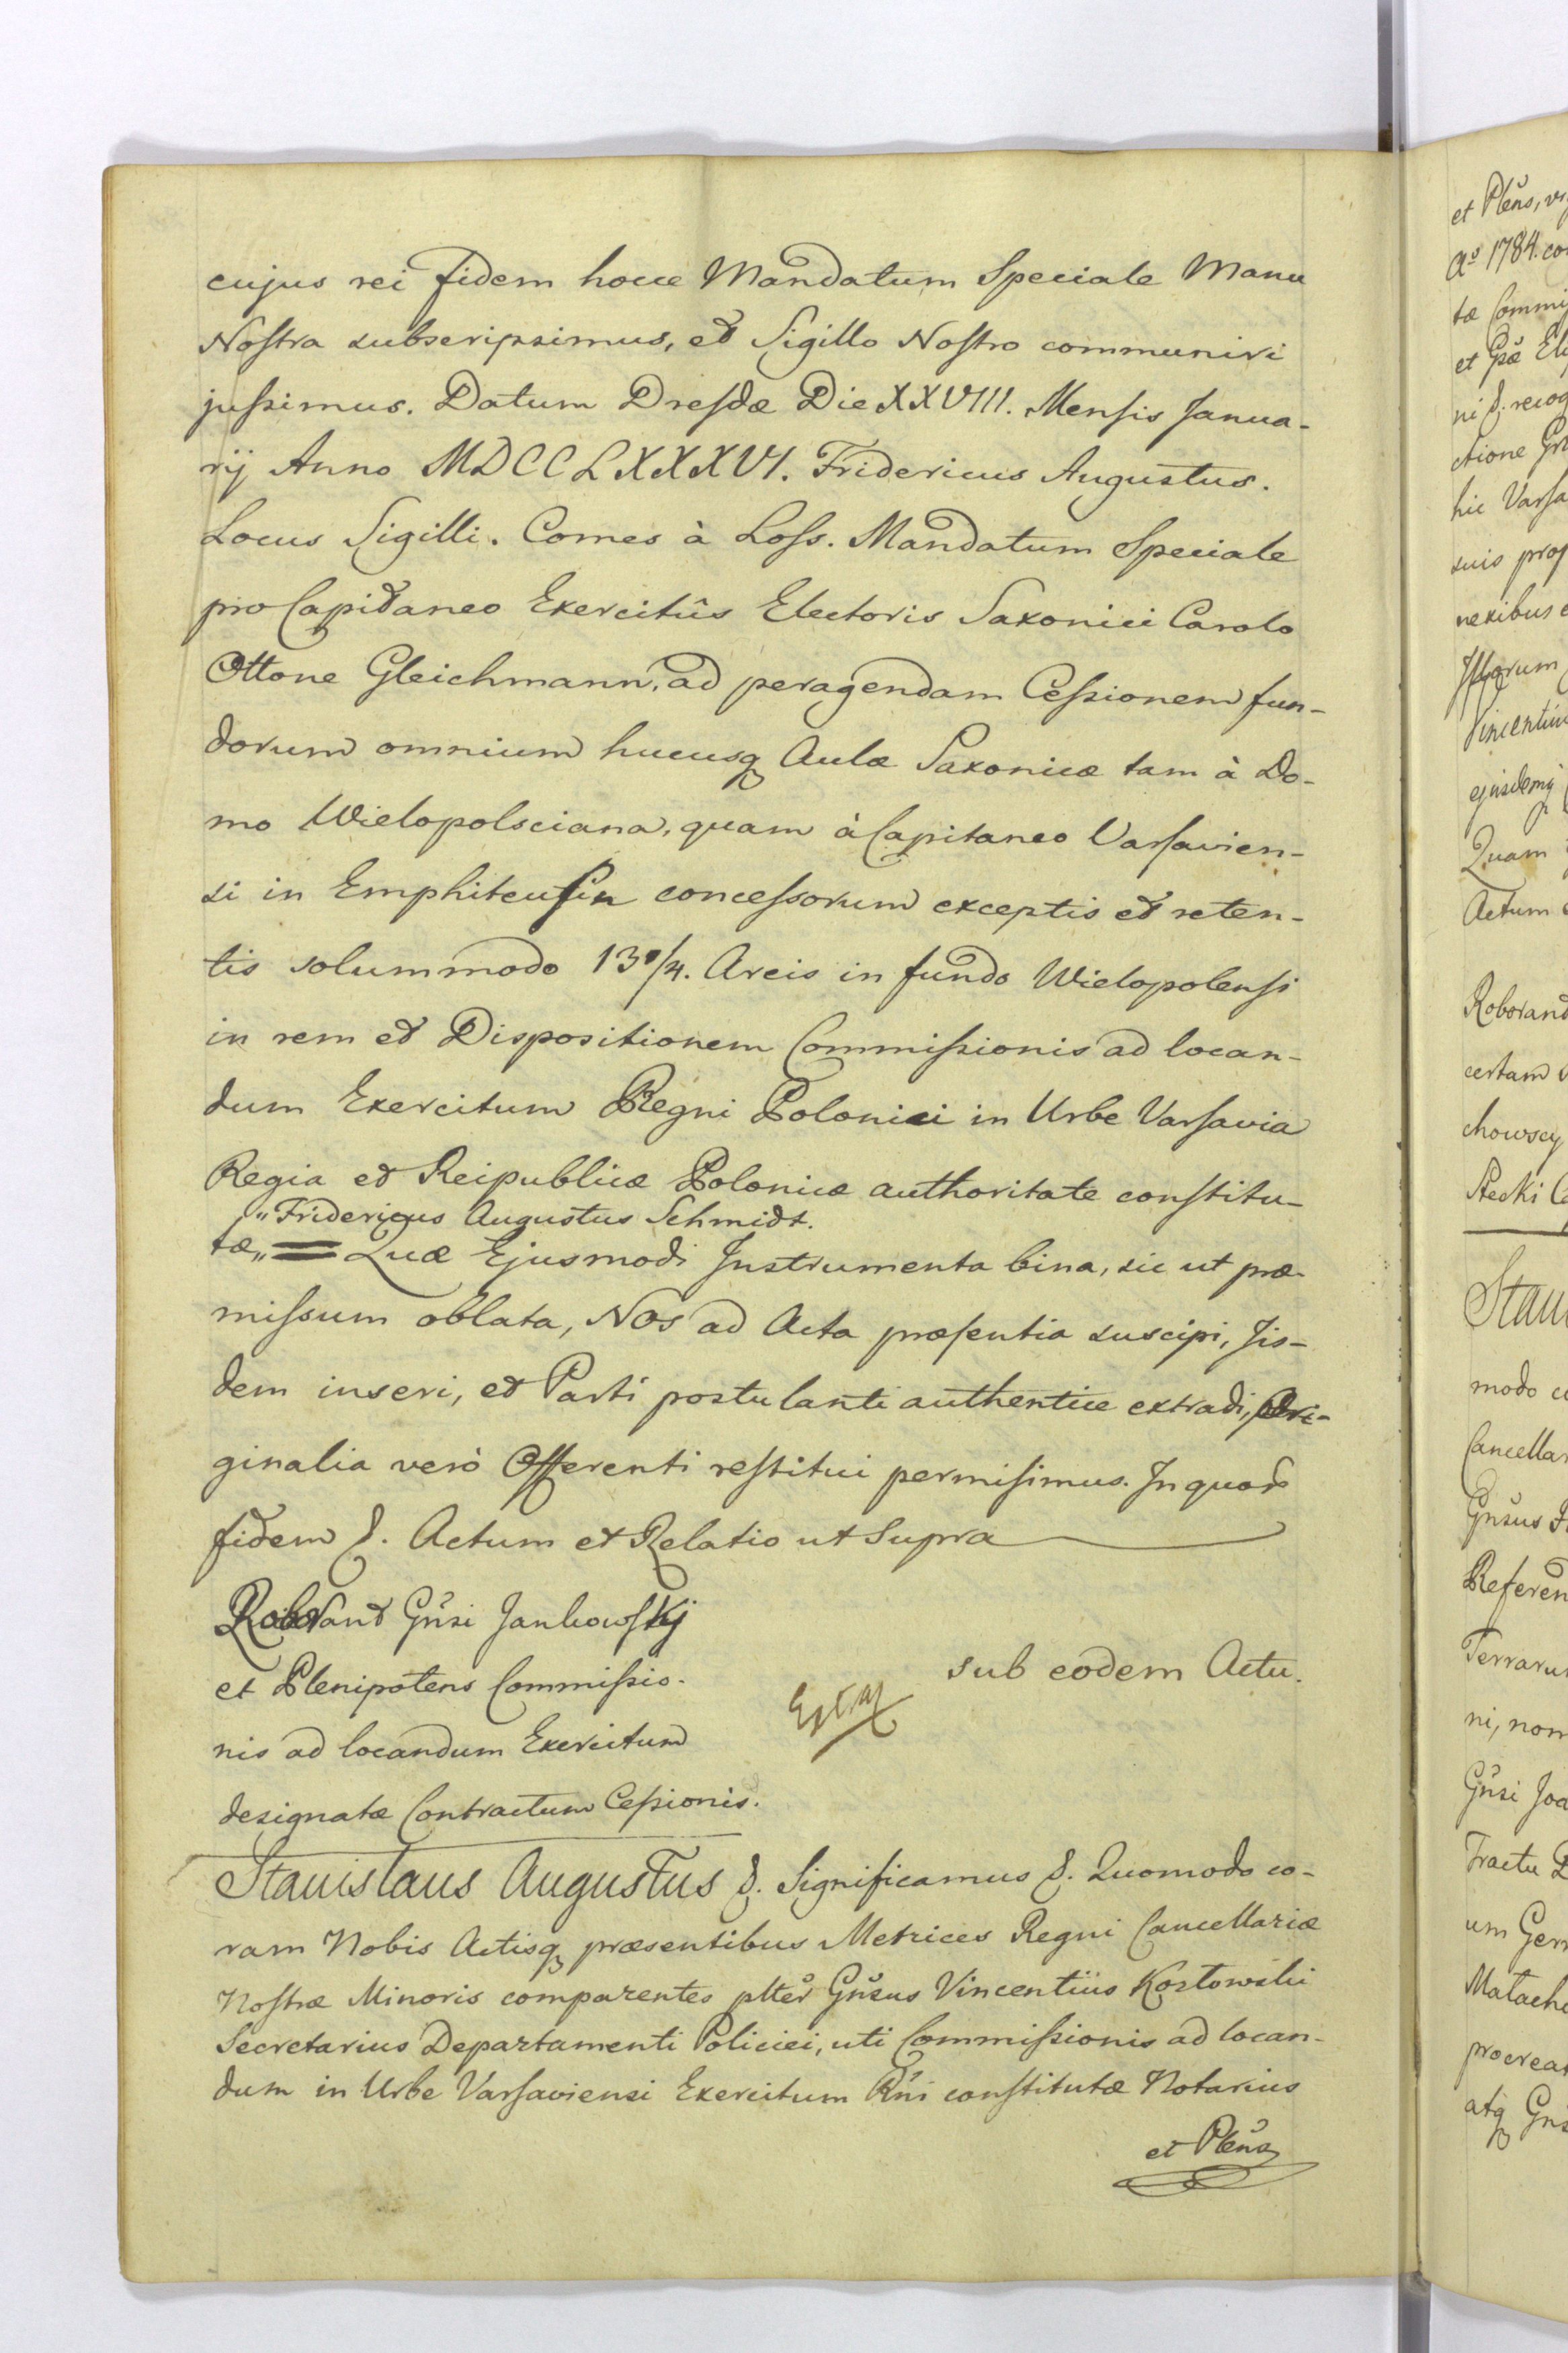 cujus rei fidem hocce Mandatum Speciale Manu
Nostra subscripsimus, et Sigillo Nostro communiri
jussimus. Datum Dresdæ Die XXVIII. Mensis Janua-
rij Anno MDCCLXXXVI. Fridericus Augustus.
Locus Sigilli. Comes à Loss. Mandatum Speciale
pro Capitaneo Exercitûs Electoris Saxonici Carolo
Ottone Gleichmann, ad peragendam Cessionem fun-
dorum omnium hucusq Aulæ Saxonicæ tam à Do-
mo Wielopolsciana, quam à Capitaneo Varsavien-
si in Emphiteusin concessorum exceptis et reten-
tis solummodo Areis in fundo Wielopolensi
in rem et Dispositionem Commissionis ad locan-
dum Exercitum Regni Polonici in Urbe Varsavia
Regia et Reipublicæ Polonicæ authoritate constitu-
"Fridericus Augustus Schmidt.
tæ„ = Quæ Ejusmodi Instrumenta bina, sic ut præ-
missum oblata, Nos ad Acta præsentia suscipi, Jis-
dem inseri, et Parti postulanti authentice extradi, Ori-
ginalia verò Offerenti restitui permisimus. In quor
fidem &. Actum et Relatio ut Supra
Roborant Gnsi Jankowskj
et Plenipotens Commissio-
nis ad locandum Exercitum
designatæ Contractum Cessionis.
sub eodem Actu.
Stanislaus Augustus &. Significamus &. Quomodo co-
ram Nobis Actisq præsentibus Metrices Regni Cancellariæ
Nostræ Minoris comparentes plter Gnsus Vincentius Kozlowski
Secretarius Departamenti Policiei, uti Commissionis ad locan-
dum in Urbe Varsaviensi Exercitum Rni constitutæ Notarius
et Plens
et Plens,
Ao 1784.
tæ
et Gsæ
ni &.
ctione
hic
suis
nexibus
Quam
Actum
certam
chowscy
Stecki
modo
Gnsus
ni,
Gnsi
Tractu
um
atq